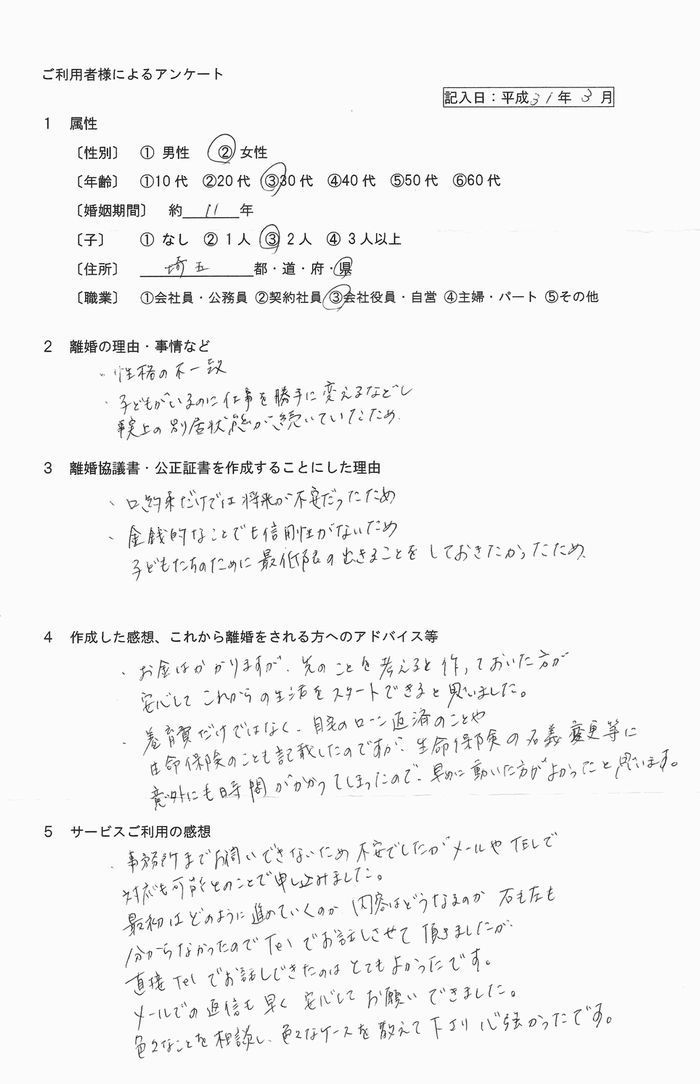 ご利用者様によるアンケート
記入日：平成31年 3月
1 属性
〔性別〕 ① 男性 ② 女性
〔年齢〕 ①10代 ②20代 ③30代 ④40代 ⑤50代 ⑥60代
〔婚姻期間〕 約 11 年
〔子〕 ① なし ② 1人 ③ 2人 ④ 3人以上
〔住所〕 埼玉 都・道・府・県
〔職業〕 ①会社員・公務員 ②契約社員 ③会社役員・自営 ④主婦・パート ⑤その他
2 離婚の理由・事情など
・性格の不一致
・子どもがいるのに仕事を勝手に変えるなどし
事実上の別居状態が続いていたため.
3 離婚協議書・公正証書を作成することにした理由
、口約束だけでは将来が不安だったため
・金銭的なことでも信用性がないため
子どもたちのために最低限の出きることをしておきたかったため.
4 作成した感想、これから離婚をされる方へのアドバイス等
・お金はかかりますが、先のことを考えると作っておいた方が
安心してこれからの生活をスタートできると思いました。
・養育費だけではなく、自宅のローン返済のことや
生命保険のことも記載したのですが、生命保険の名義変更等に
意外にも時間がかかってしまったので、早めに動いた方がよかったと思います。
5 サービスご利用の感想
・事務所までお伺いできないため不安でしたがメールやTELで
対応も可能とのことで申し込みました。
最初はどのように進めていくのか内容はどうなるのか右も左も
分からなかったのでTelでお話しさせて頂きましたが、
直接Telでお話しできたのはとてもよかったです。
メールでの返信も早く安心してお願いできました。
色々なことを相談し、色々なケースを教えて下さり心強かったです。